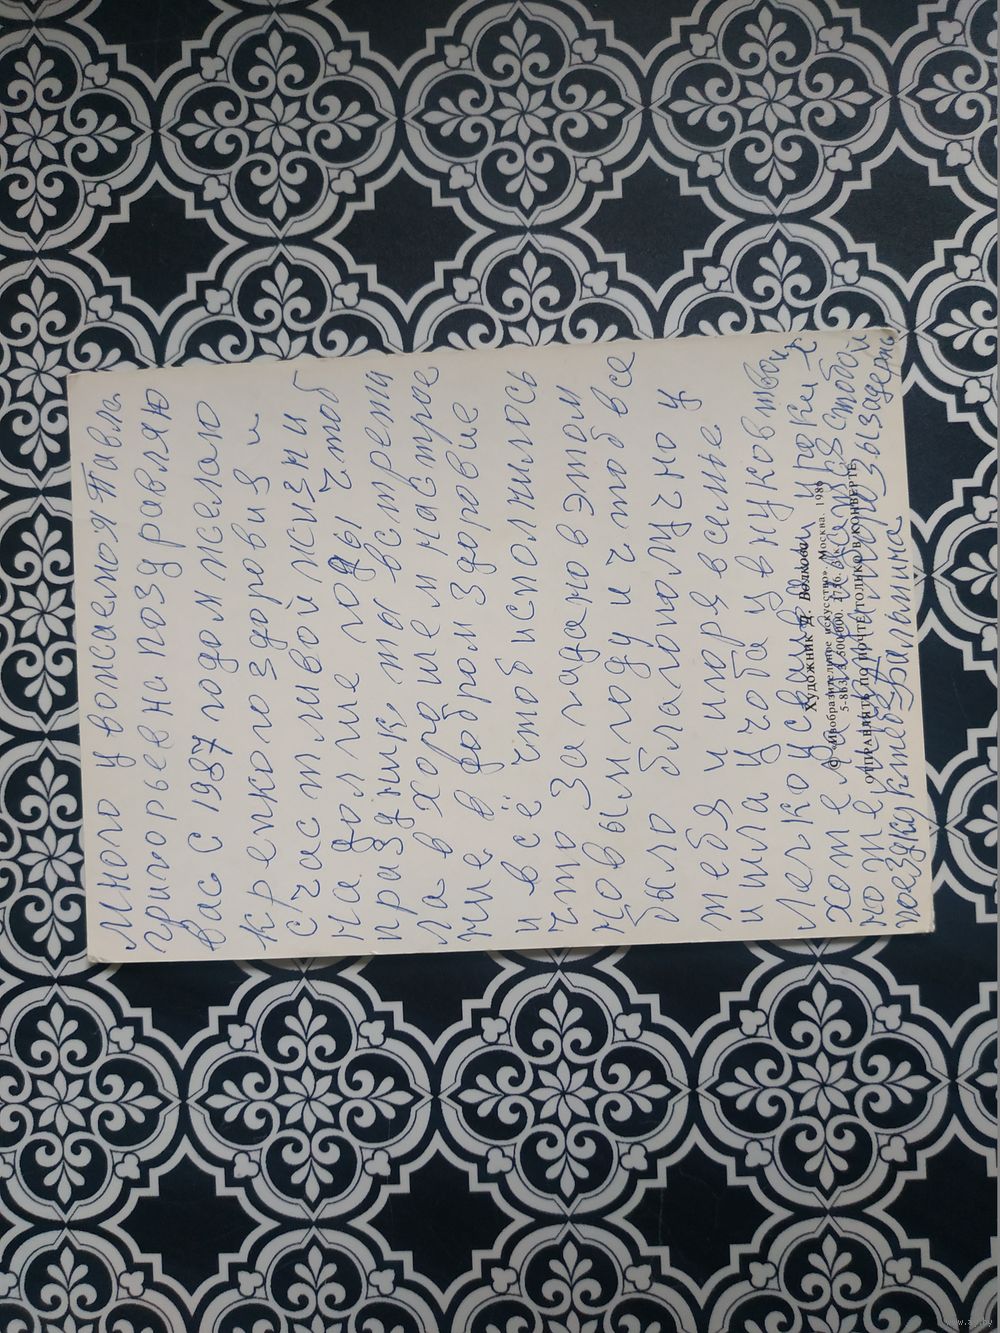 Много уважаемоя Павла
григорьевна поздравляю
Вас с 1987 годом желаю
крепкого здоровия и
счастливой жизни
на долгие годы чтоб
праздник ты встрети
ла в хорошем настрое
ние в добром здоровие
и всё чтоб исполнилось
что загадано в этом
новым году и чтоб все
было благополучно у
тебя и игоря в семье
и шла учоба у внуков твоих
легко усваивали уроки я
хотела встретится стобой
но не
поездку Бальчина
Художник Д. Волкова
© «Изобразительное искусство» Москва. 1986
ОТПРАВЛЯТЬ ПО ПОЧТЕ ТОЛЬКО В КОНВЕРТЕ